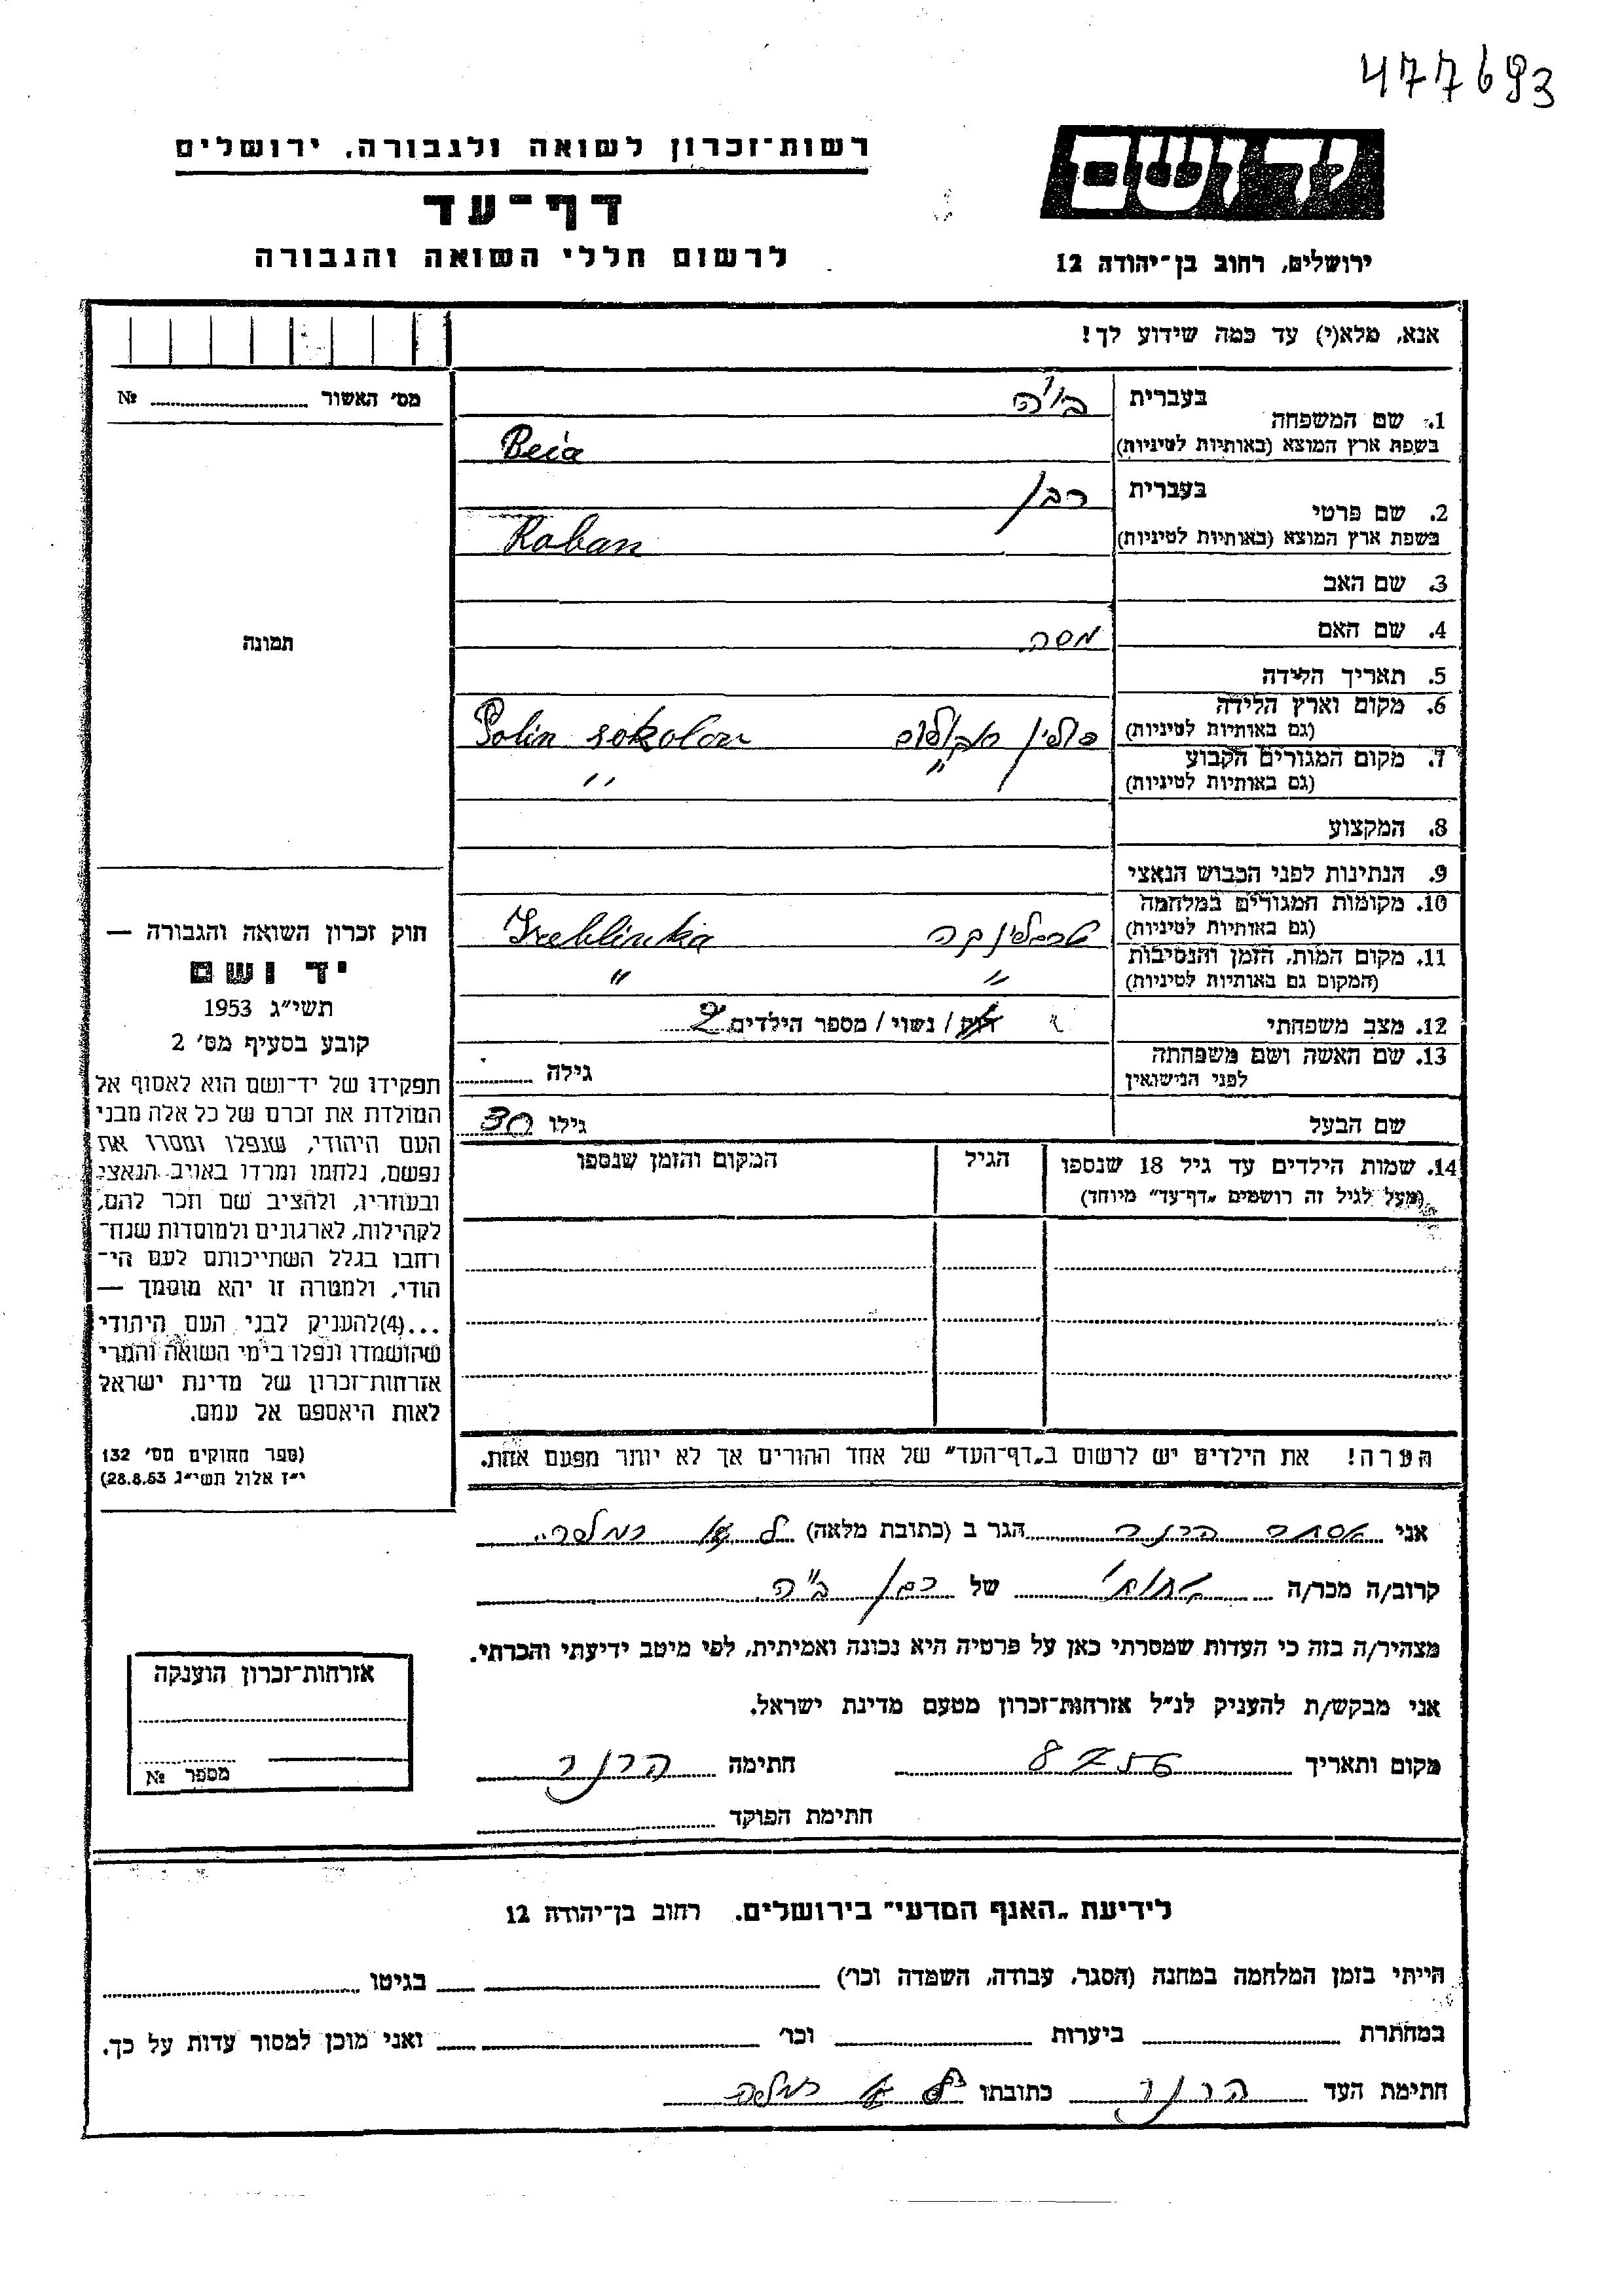 477693
רשות־זכרון לשואה ולגבורה, ירושלים
דף־עד
לרשום חללי השואה והגבורה
יד ושם
ירושלים, רחוב בן־יהודה 12
אנא, מלא(י) עד כמה שידוע לך!
מס׳ האשור № 
1. שם המשפחה
בעברית
בשפת ארץ המוצא (באותיות לטיניות)
Beia
2. שם פרטי
בעברית רבן
בשפת ארץ המוצא (באותיות לטיניות) Raban
3. שם האב
4. שם האם
5. תאריך הלידה
6. מקום וארץ הלידה
(גם באותיות לטיניות) פולין סוקולוב Polin sokolow
7. מקום המגורים הקבוע
(גם באותיות לטיניות) ״ ״
8. המקצוע
9. הנתינות לפני הכבוש הנאצי
10. מקומות המגורים במלחמה
(גם באותיות לטיניות) טרבלינקה Treblinka
11. מקום המות, הזמן והנסיבות
(המקום גם באותיות לטיניות) ״ ״
12. מצב משפחתי רווק / נשוי / מספר הילדים 2
13. שם האשה ושם משפחתה
לפני הנישואין גילה
שם הבעל גילו 30
14. שמות הילדים עד גיל 18 שנספו הגיל המקום והזמן שנספו
(מעל לגיל זה רושמים „דף־עד״ מיוחד)
הערה! את הילדים יש לרשום ב„דף־העד״ של אחד ההורים אך לא יותר מפעם אחת.
תמונה
חוק זכרון השואה והגבורה —
יד ושם
תשי״ג 1953
קובע בסעיף מס׳ 2
תפקידו של יד־ושם הוא לאסוף אל
המולדת את זכרם של כל אלה מבני
העם היהודי, שנפלו ומסרו את
נפשם, נלחמו ומרדו באויב הנאצי
ובעוזריו, ולהציב שם וזכר להם,
לקהילות, לארגונים ולמוסדות שנח־
רחבו בגלל השתייכותם לעם הי־
הודי, ולמטרה זו יהא מוסמך —
...(4)להעניק לבני העם היהודי
שהושמדו ונפלו בימי השואה והמרי
אזרחות־זכרון של מדינת ישראל
לאות היאספם אל עמם.
(ספר החוקים מס׳ 132
י״ז אלול תשי״ג 28.8.53)
אני אסתר הרנר הגר ב (כתובת מלאה)
קרוב/ה מכר/ה של רבן
מצהיר/ה בזה כי העדות שמסרתי כאן על פרטיה היא נכונה ואמיתית, לפי מיטב ידיעתי והכרתי.
אני מבקש/ת להעניק לנ״ל אזרחות־זכרון מטעם מדינת ישראל.
מקום ותאריך חתימה הרנר
חתימת הפוקד
אזרחות־זכרון הוענקה
מספר №
לידיעת „האגף המדעי״ בירושלים. רחוב בן־יהודה 12
הייתי בזמן המלחמה במחנה (הסגר, עבודה, השמדה וכו׳) בגיטו
במחתרת ביערות וכו׳ ואני מוכן למסור עדות על כך.
חתימת העד הרנר כתובתו